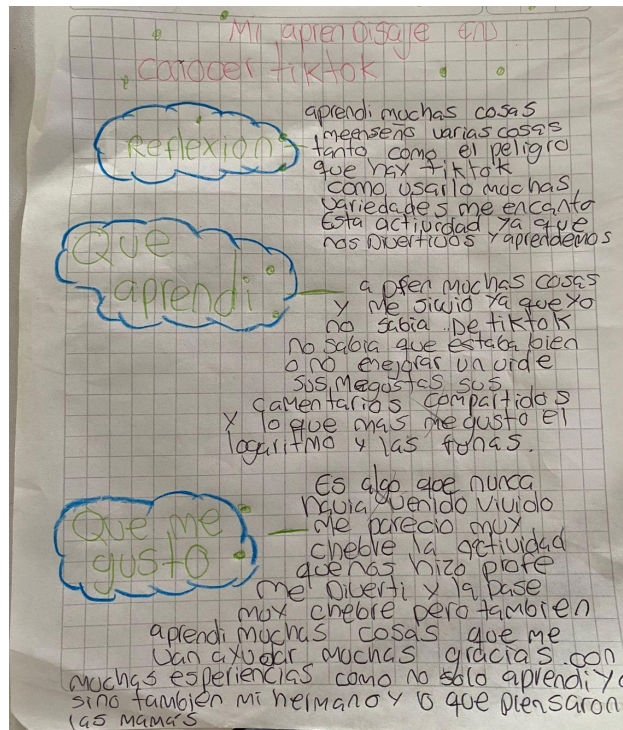 Mi aprendisaje en
conocer tiktok
Reflexión
aprendi muchas cosas
meenseño varias cosas
tanto como el peligro
que hay tiktok
como usarlo muchas
variedades me encanto
Esta actividad ya que
nos Divertivos y aprendemos
Que
aprendi
a pren muchas cosas
y me siwio ya que yo
no sabia De tiktok
no sabia que estaba bien
o no mejorar un vide
sus megustas sus
comentarios compartidos
y lo que mas me gusto el
logaritmo y las
Es algo que nunca
havia venido vivido
Me parecio muy
chebre la actividad
que nos hizo profe
Que me
gusto
me Diverti y la pase
muy chebre pero tambien
aprendi muchas cosas que me
van axudar muchas gracias con
muchas esperiencias como no solo aprendi Yo
sino tambien mi hermano y lo que piensaron
las mamás